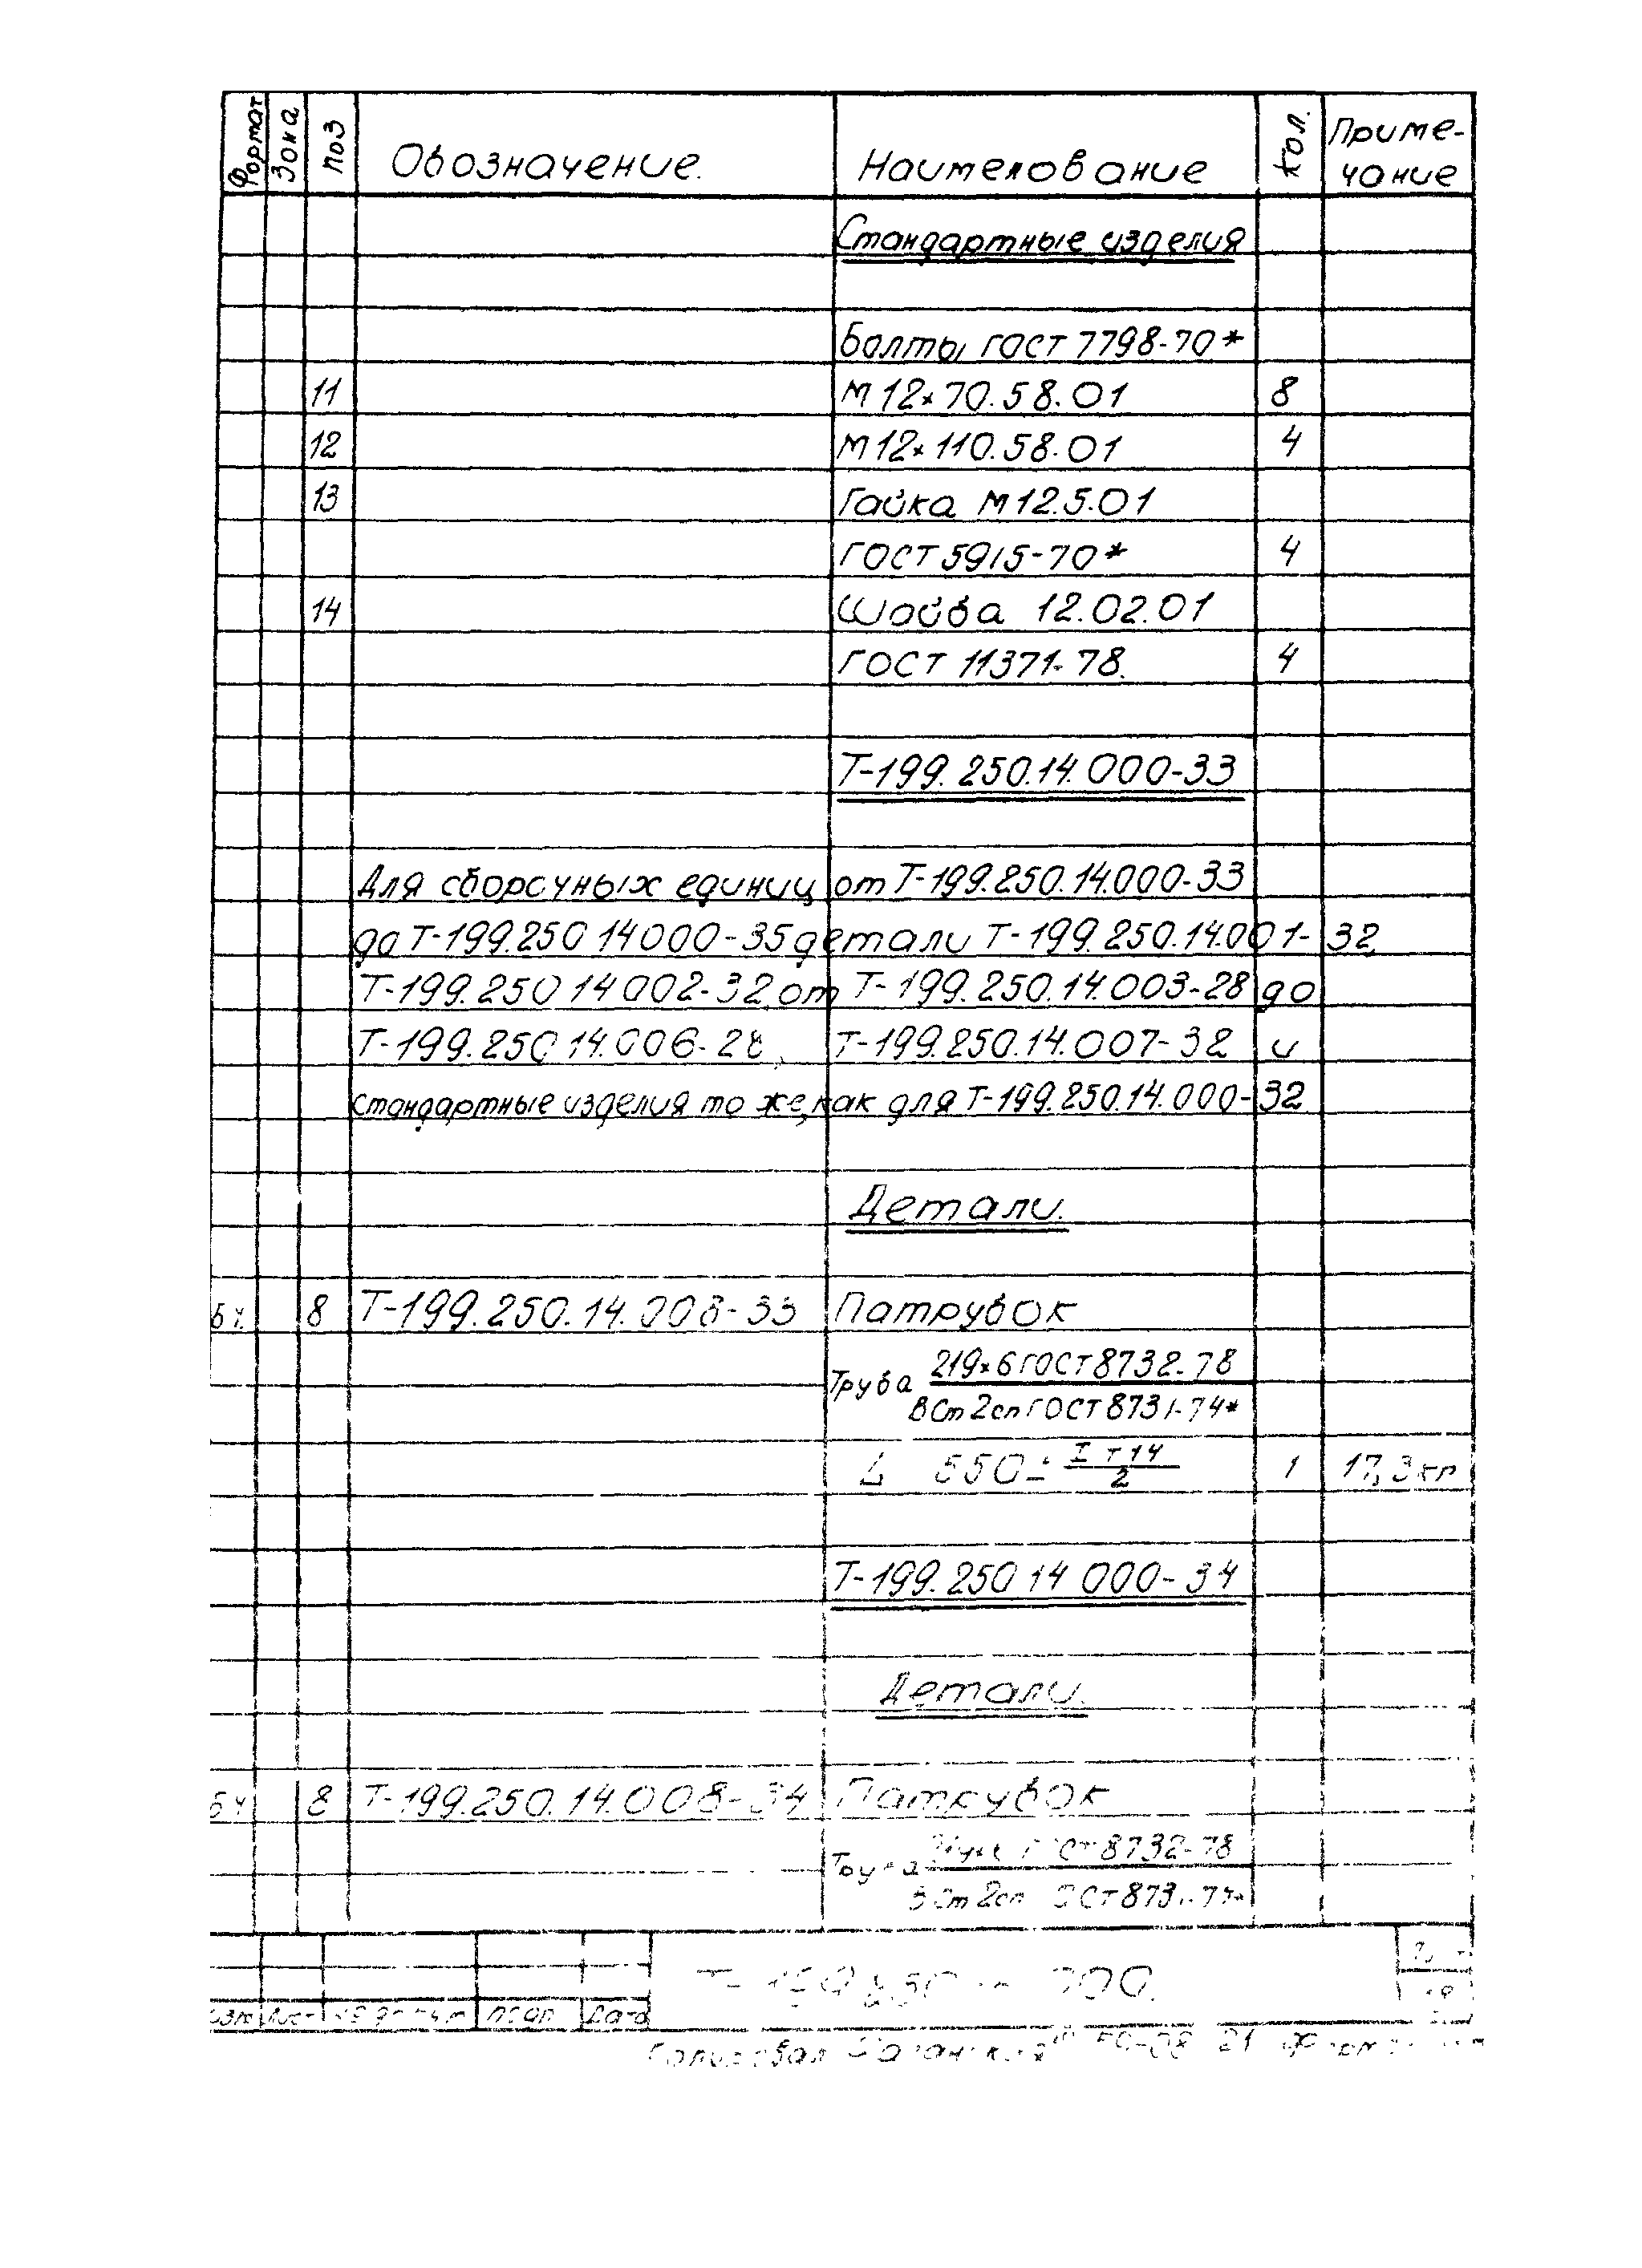 Формат Зона Поз Обозначение. Наименование Кол. Приме-
чание
Стандартные изделия
Болты ГОСТ 7798-70*
11 М12х70.58.01 8
12 М12х110.58.01 4
13 Гайка М12.5.01
ГОСТ 5915-70* 4
14 Шайба 12.02.01
ГОСТ 11371-78. 4
Т-199.250.14.000-33
Для сборочных единиц от Т-199.250.14.000-33
до Т-199.250 14000-35 детали Т-199.250.14.001-32,
Т-199.250 14 002-32, от Т-199.250.14.003-28 до
Т-199.250 14.006-28, Т-199.250.14.007-32 и
стандартные изделия то же, как для Т-199.250.14.000-32
Детали.
БЧ. 8 Т-199.250.14.008-33 Патрубок
Труба 219х6 ГОСТ 8732-78
ВСт2сп ГОСТ 8731-74*
550± 14/2 1 17,3кг
Т-199.250 14 000-34
Детали.
БЧ 8 Т-199.250.14.008-34 Патрубок
Труба ГОСТ 8732-78
ВСт2сп ГОСТ 8731-74*
Изм Лист № докум Подп. Дата
Копировал Формат